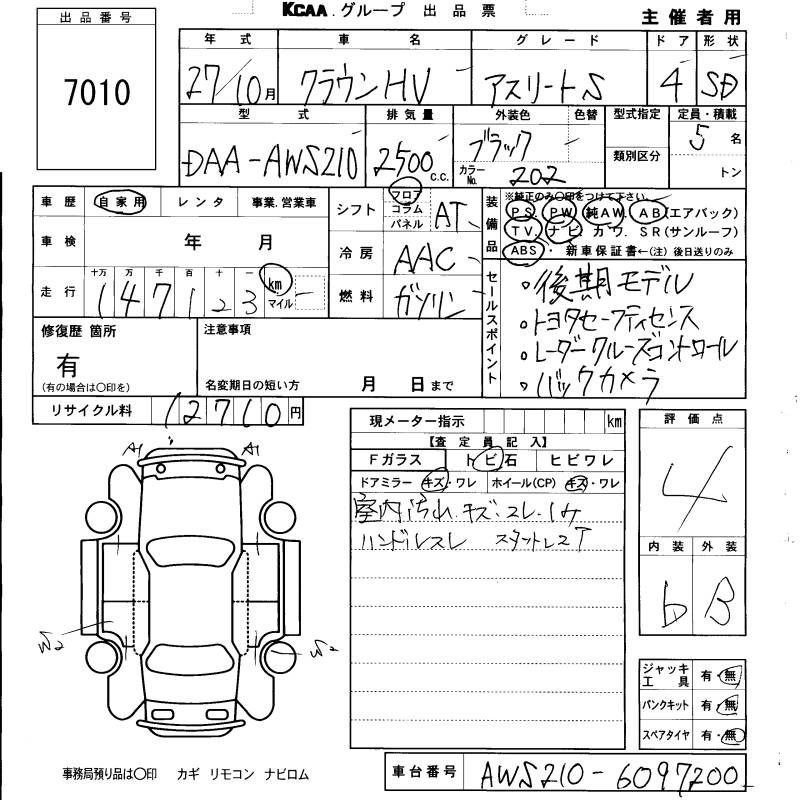 KCAA.グループ 出品票
主催者用
出品番号
7010
年式 車名 グレード ドア 形状
27/10月 クラウンHV アスリートS 4 SD
型式 排気量 外装色 色替 型式指定 定員・積載
DAA-AWS210 2500 c.c. ブラック 類別区分 5名
カラーNo. 202 トン
車歴 自家用 レンタ 事業.営業車
車検 年 月
走行 十万 万 千 百 十 一
147123 km マイル
シフト フロア コラム パネル AT
冷房 AAC
燃料 ガソリン
装備品
※純正のみ〇印をつけて下さい。
PS. PW. 純AW. AB(エアバック)
TV. ナビ. カワ. SR(サンルーフ)
ABS・ 新車保証書←(注) 後日送りのみ
セールスポイント
・後期モデル
・トヨタセーフティセンス
・レーダークルーズコントロール
・バックカメラ
修復歴 箇所
有
(有の場合は〇印を)
注意事項
名変期日の短い方 月 日まで
リサイクル料 12710円
現メーター指示 km
【査定員記入】
Fガラス トビ石 ヒビワレ
ドアミラー キズ・ワレ ホイール(CP) キズ・ワレ
室内汚れ.キズ.スレ.シミ
ハンドルスレ
評価点
4
内装 外装
b B
A1 A1
W2 W1
ジャッキ工具 有・無
パンクキット 有・無
スペアタイヤ 有・無
事務局預り品は〇印 カギ リモコン ナビロム
車台番号 AWS210-6097200